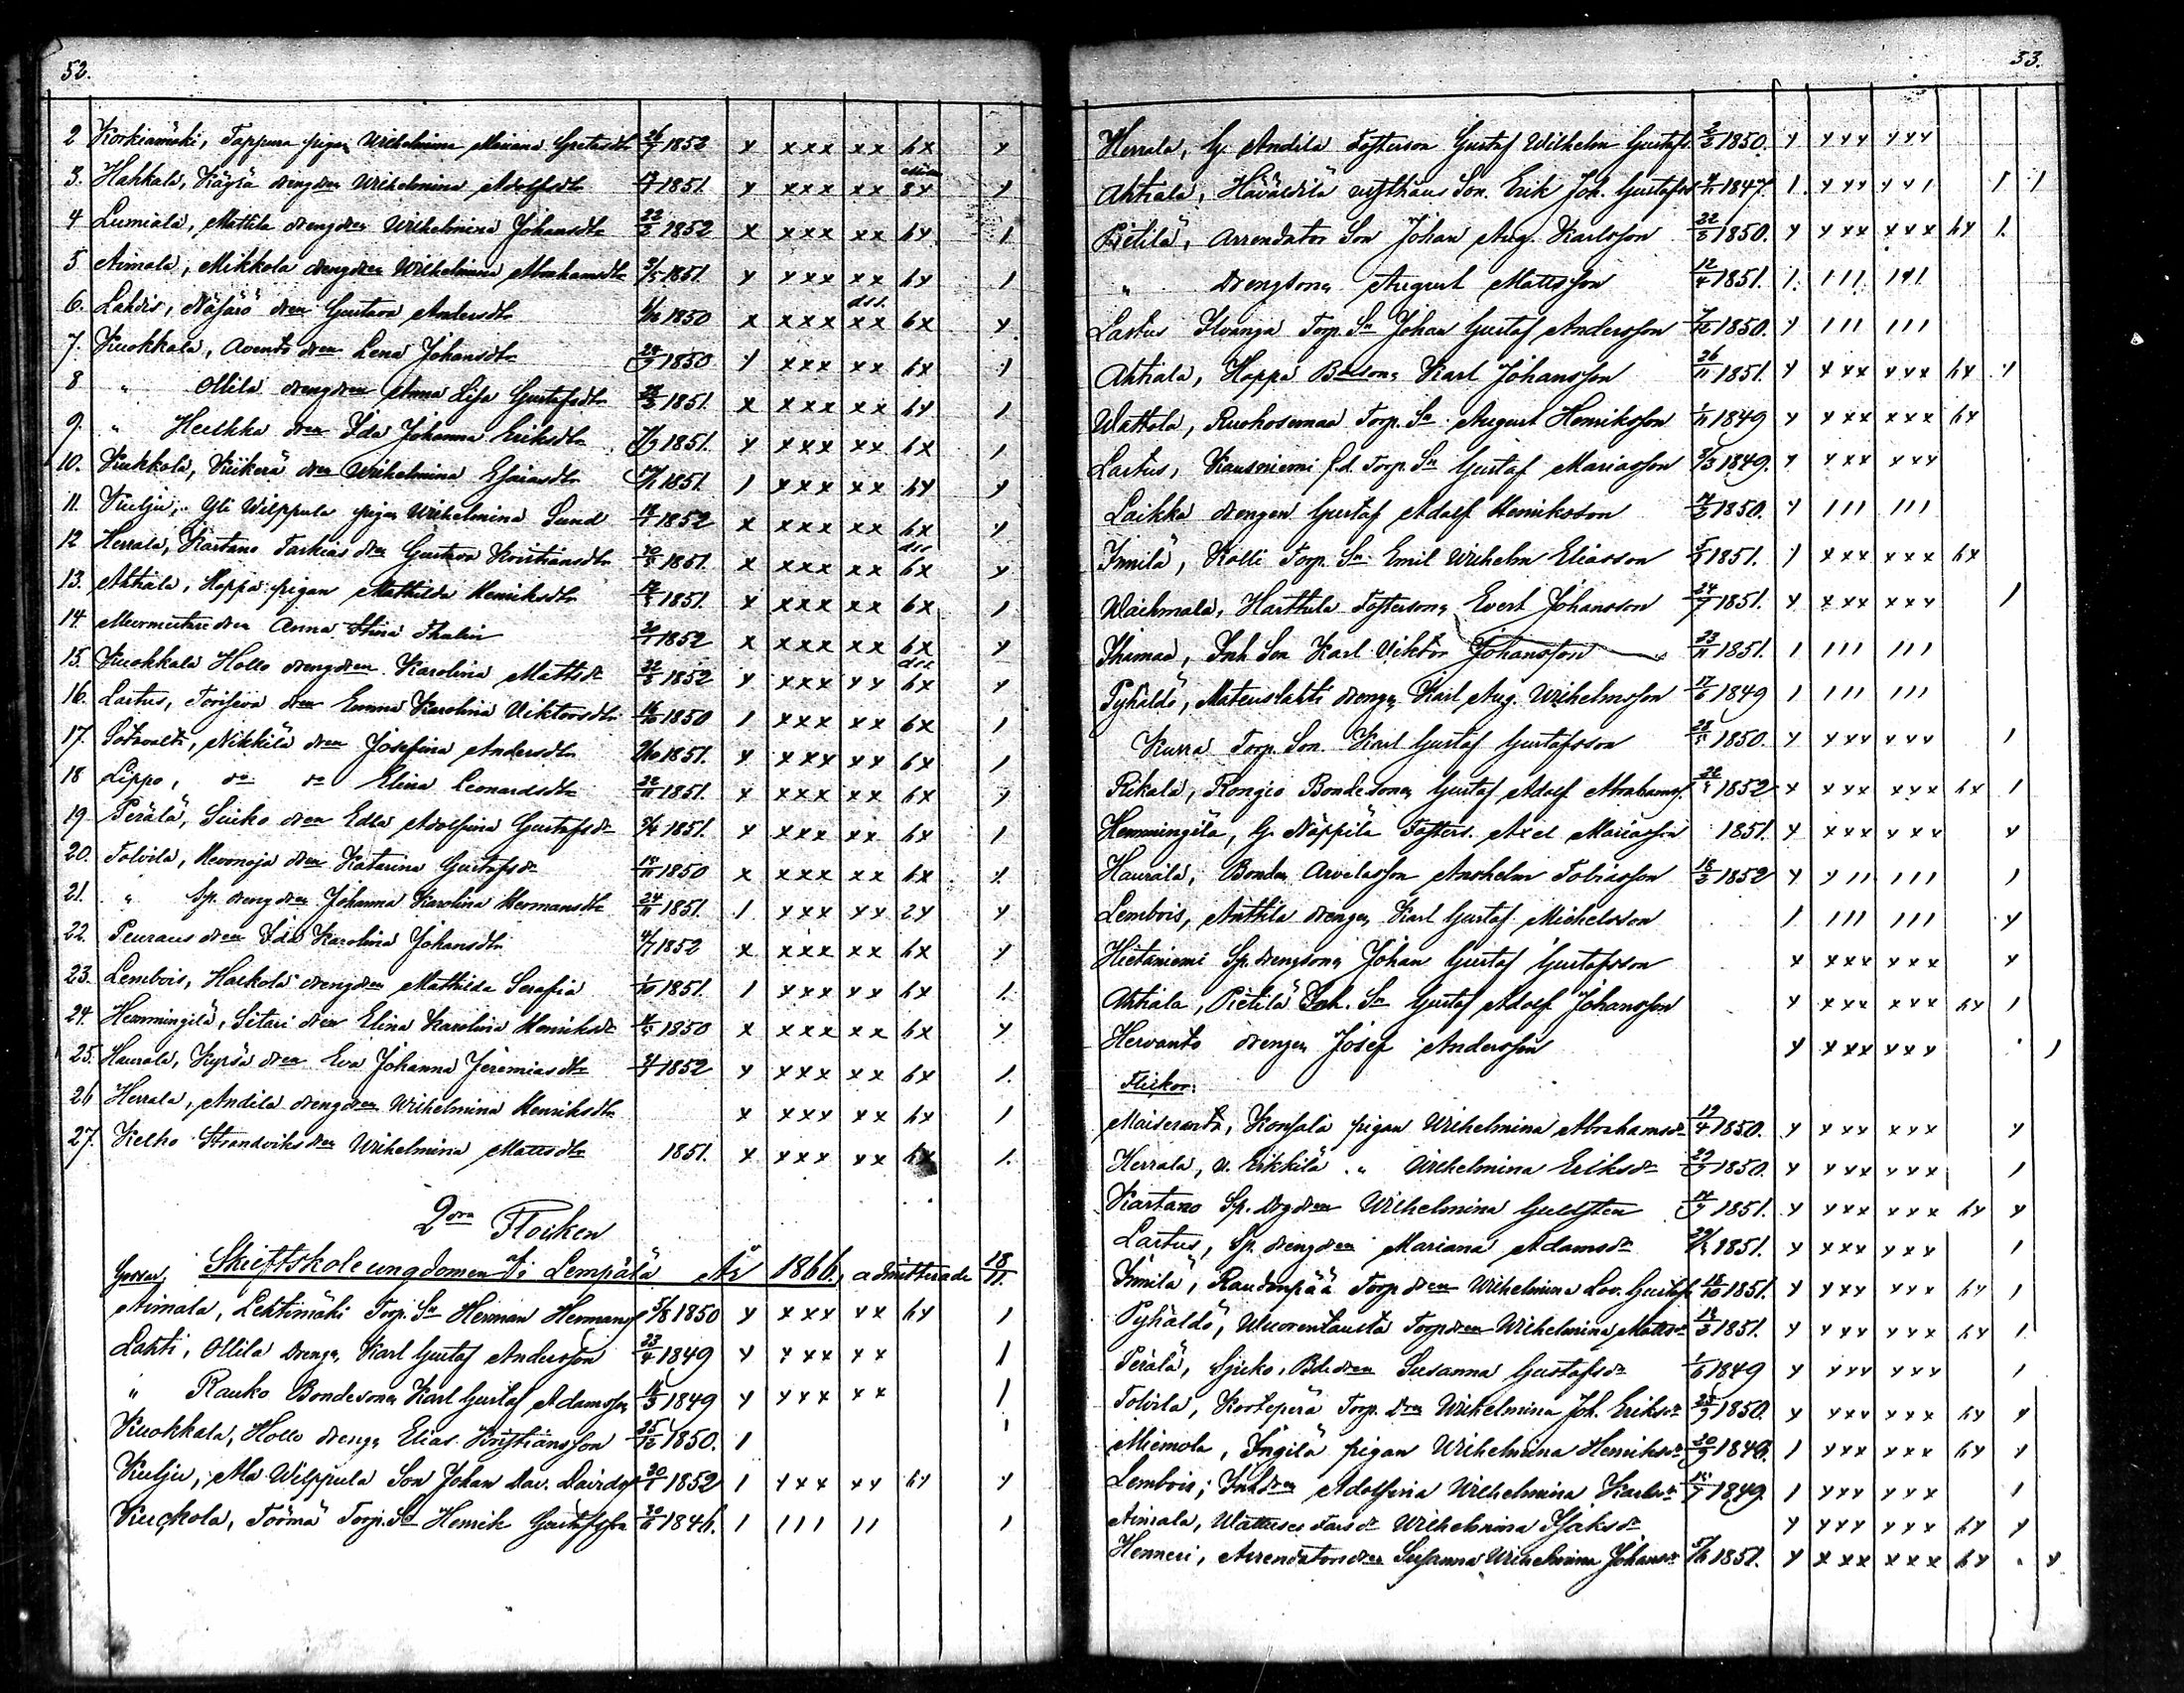 52.
2 Korkiamäki, Tappura pigan Wilhelmina Mariana Gretasdr 26/7 1852 x xxx xx hx x
3. Hahkala, Kägrä drengdren Wilhelmina Adolfsdr 1851. x xxx xx 8x x
4 Lumiala, Mattila drengdren Wilhelmina Johansdr 22/2 1852 x xxx xx hx 1
5 Aimala, Mikkola drengdren Wilhelmina Abrahamsdr 3/5 1851. x xxx xx hx 1
6. Lahdis, dren Gustava Andersdr 1850 x xxx xx hx x
7. Kuokkala, dren Lena Johansdr 24/9 1850 1 xxx xx hx 1
8 " Ollila drengdren Anna Lisa Gustafsdr 1851. x xxx xx hx 1
9. " Heikka dren Ida Johanna Eriksdr 1851. x xxx xx hx 1
10. Kukkola, Kiikerä dren Wilhelmina Esaiasdr 1851. 1 xxx xx hx x
11. Kulju, Yli Wilppula pigan Wilhelmina Lund 1852 x xxx xx hx x
12 Herrala, Kartano dren Gustava Kristiansdr 1851. x xxx xx hx x
13. Ahtiala, Hoppa pigan Mathilda Henriksdr 1851. x xxx xx hx 1
14. Murmestare dren Anna Stina Thalin 1852 x xxx xx hx x
15. Kuokkala Hollo drengdren Karolina Mattsdr 22/3 1852 x xxx xx hx x
16. Lastus, dren Emma Karolina Viktorsdr 16/10 1850 1 xxx xx hx 1
17. Sotavalta, Nikkilä dren Josefina Andersdr 1851. x xxx xx hx 1
18 Lippo, do do Elina Leonardsdr 22/11 1851. x xxx xx hx x
19. Perälä, dren Edla Adolfina Gustafsdr 1851. x xxx xx hx 1
20. Tolvila, Meronoja dren Katarina Gustafsdr 1850 x xxx xx hx x
21. " Sp. drengdren Johanna Karolina Hermansdr 24/11 1851. 1 xxx xx 2x x
22. dren Ida Karolina Johansdr 4/7 1852 x xxx xx hx x
23. Lembois, Haikola drengdren Mathilda Serafia 1/10 1851. 1 xxx xx hx 1.
24. Hemmingilä, Sitari dren Elina Karolina Henriksdr 1850 x xxx xx hx x
25. Haurala, Kyrsä dren Eva Johanna Jeremiasdr 1852 x xxx xx hx 1.
26 Herrala, Andila drengdren Wilhelmina Henriksdr x xxx xx hx 1
27. Kelho Strandviks dren Wilhelmina Mattsdr 1851. x xxx xx hx 1.
2dra Flocken
Gossar, Skriftskoleungdomen af i Lempälä År 1866, admitterade 18/11.
Aimala, Lehtimäki Torp. Sn Herman Hermansf 5/8 1850 x xxx xx hx 1
Lahti, Ollila drengen Karl Gustaf Andersson 23/4 1849 x xxx xx 1
" Rauko Bondesonen Karl Gustaf Adamsson 1849 x xxx xx 1
Kuokkala, Hollo drengen Elias Kristiansson 25/12 1850. 1 1
Kulju, Ala Wilppula Son Johan Dav. Davidsf 1852 1 xxx xx hx x
Kuokkola, Törmä Torp. Sn Henrik Gustafsson 1846. 1 111 11 1
53.
Herrala, G. Andila Fosterson Gustaf Wilhelm Gustafs. 1850. x xxx xxx
Ahtiala, Häväldilä Son. Erik Joh. Gustafss 1847. 1. xxx xx1 1 1
Pietilä, Arrendator Son Johan Aug. Karlsson 22/3 1850. x xxx xxx hx 1.
" drengsonen August Mattsson 12/4 1851. 1. 111 1x1
Lastus Ilvanga Torp. Sn Johan Gustaf Andersson 7/12 1850. x 111 111
Ahtiala, Hoppa Bdesonen Karl Johansson 26/11 1851. x xxx xxx hx x
Wattola, Ruohosemaa Torp. Sn August Henriksson 1/11 1849 x xxx xxx hx
Lastus, Kausniemi f.d. Torp. Sn Gustaf Mariasson 1849. x xxx xxx
Laikka drengen Gustaf Adolf Henriksson 1850. x 111 111
Innilä, Kolli Torp. Sn Emil Wilhelm Eliasson 1851. 1 xxx xxx hx
Waihmala, Harttula Fostersonen Evert Johansson 24/7 1851. x xxx xxx 1
Thamaa, Inh. Son Karl Viktor Johansson 23/11 1851. 1 111 111
Pyhäldö, Mateuslahti drengen Karl Aug. Wilhelmsson 17/6 1849 1 111 111
Kurra Torp. Son Karl Gustaf Gustafsson 1850. x xxx xxx 1
Rikala, Rongio Bondesonen Gustaf Adolf Abrahamsf. 1852 x xxx xxx hx 1
Hemmingilä, G. Näppilä Fosters. Axel Mariasson 1851. x xxx xxx x
Haurala, Bonden Arvelasson Anshelm Tobiasson 18/3 1852 x x11 111 1
Lembois, Anttila drengen Karl Gustaf Michelsson 1 111 111 x
Hietaniemi Sp. drengsonen Johan Gustaf Gustafsson x xxx xxx x
Ahtiala, Pietilä Inh. Sn Gustaf Adolf Johansson x xxx xxx hx 1
Hervanto drengen Josef Andersson x xxx xxx 1
Flickor:
Maiseranta, Konsala pigan Wilhelmina Abrahamsdr 19/4 1850. x xxx xxx x
Herrala, N. Erkkilä " Wilhelmina Eriksdr 29/9 1850. x xxx xxx 1
Kartano Sp. drgdren Wilhelmina Guldsten 1851. x xxx xxx hx x
Lastus, Sp. drengdren Mariana Adamsdr 1851. x xxx xxx 1
Innilä, Raudonpää Torpdren Wilhelmina Lov. Gustafs 18/10 1851. x xxx xxx hx 1
Pyhäldö, Wuorentausta Torpdren Wilhelmina Mattsdr 1851. x xxx xxx hx 1.
Perälä, Sjuko. Bdedren Susanna Gustafsdr 1/6 1849 x xxx xxx 1
Tolvila, Korteperä Torp. dren Wilhelmina Joh. Eriksdr 1850. x xxx xxx hx x
Miemola, Ingilä pigan Wilhelmina Henriksdr 20/9 1848. 1 xxx xxx hx x
Lembois; Inhdren Adolfina Wilhelmina Karlsdr 1849. 1 xxx xxx 1
Aimala, Wattuses dr Wilhelmina Isaksdr x xxx xxx hx x
Henneri, Arrendatorsdren Susanna Wilhelmina Johansdr 1851. x xxx xxx hx . x